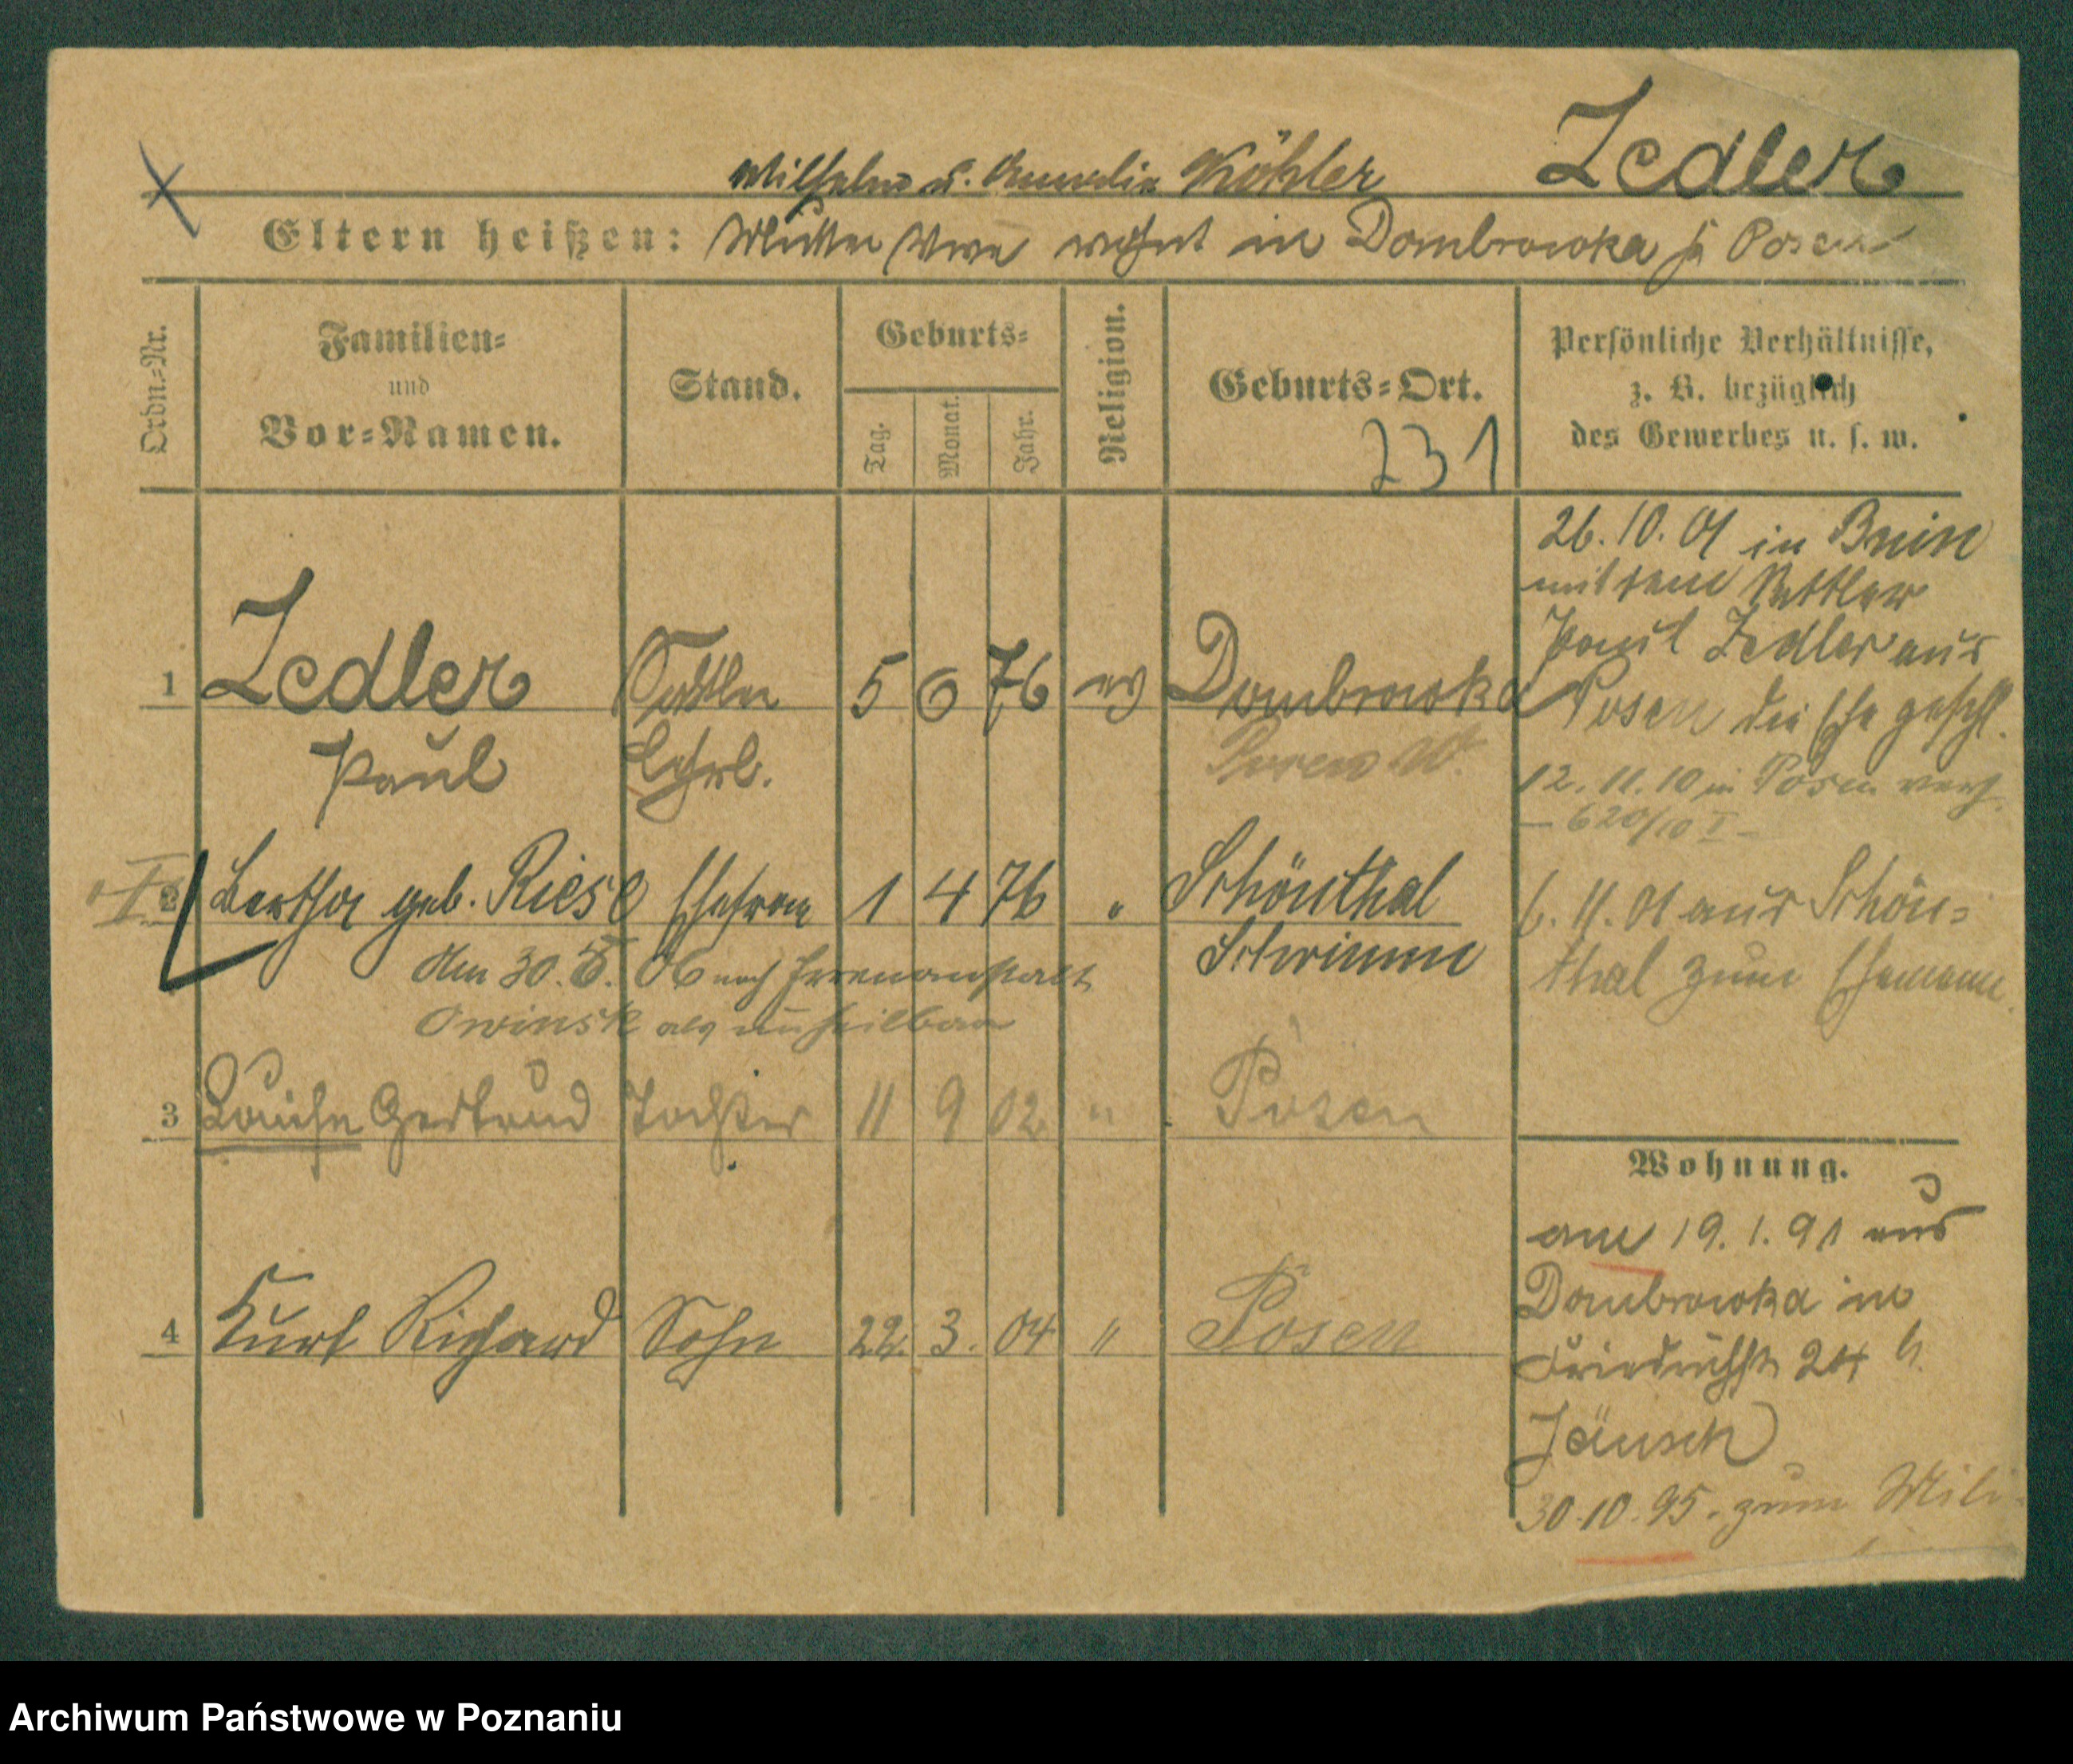 Zedler
Wilhelm u. Amalie Köhler
Eltern heißen: Mutter Wwe wohnt in Dombrowka b Posen
Ordn.-Nr.
Familien-
und
Vor-Namen.
Stand.
Geburts-
Tag.
Monat.
Jahr.
Religion.
Geburts-Ort.
231
Persönliche Verhältnisse,
z. B. bezüglich
des Gewerbes u. s. w.
1 Zedler Sattler 5 6 76 ev Dombrowka
Paul Lehrl. Posen W.
2 Bertha geb. Riese Ehefrau 1 4 76 " Schönthal
Schwimm
Am 30. 06 nach Irrenanstalt
Owinsk als unheilbar
3 Louise Gertrud Tochter 11 9 02 " Posen
4 Kurt Richard Sohn 22. 3. 04 " Posen
26. 10. 01 in Bnin
mit dem Sattler
Paul Zedler aus
Posen die Ehe geschl.
12. 11. 10 in Posen
– 620/10 I –
6. 11. 01 aus Schön=
thal zum Ehemann
Wohnung.
am 19. 1. 91 aus
Dombrowka in
Friedrichstr 24 b.
Jänsch
30. 10. 95. zum Mili
Archiwum Państwowe w Poznaniu